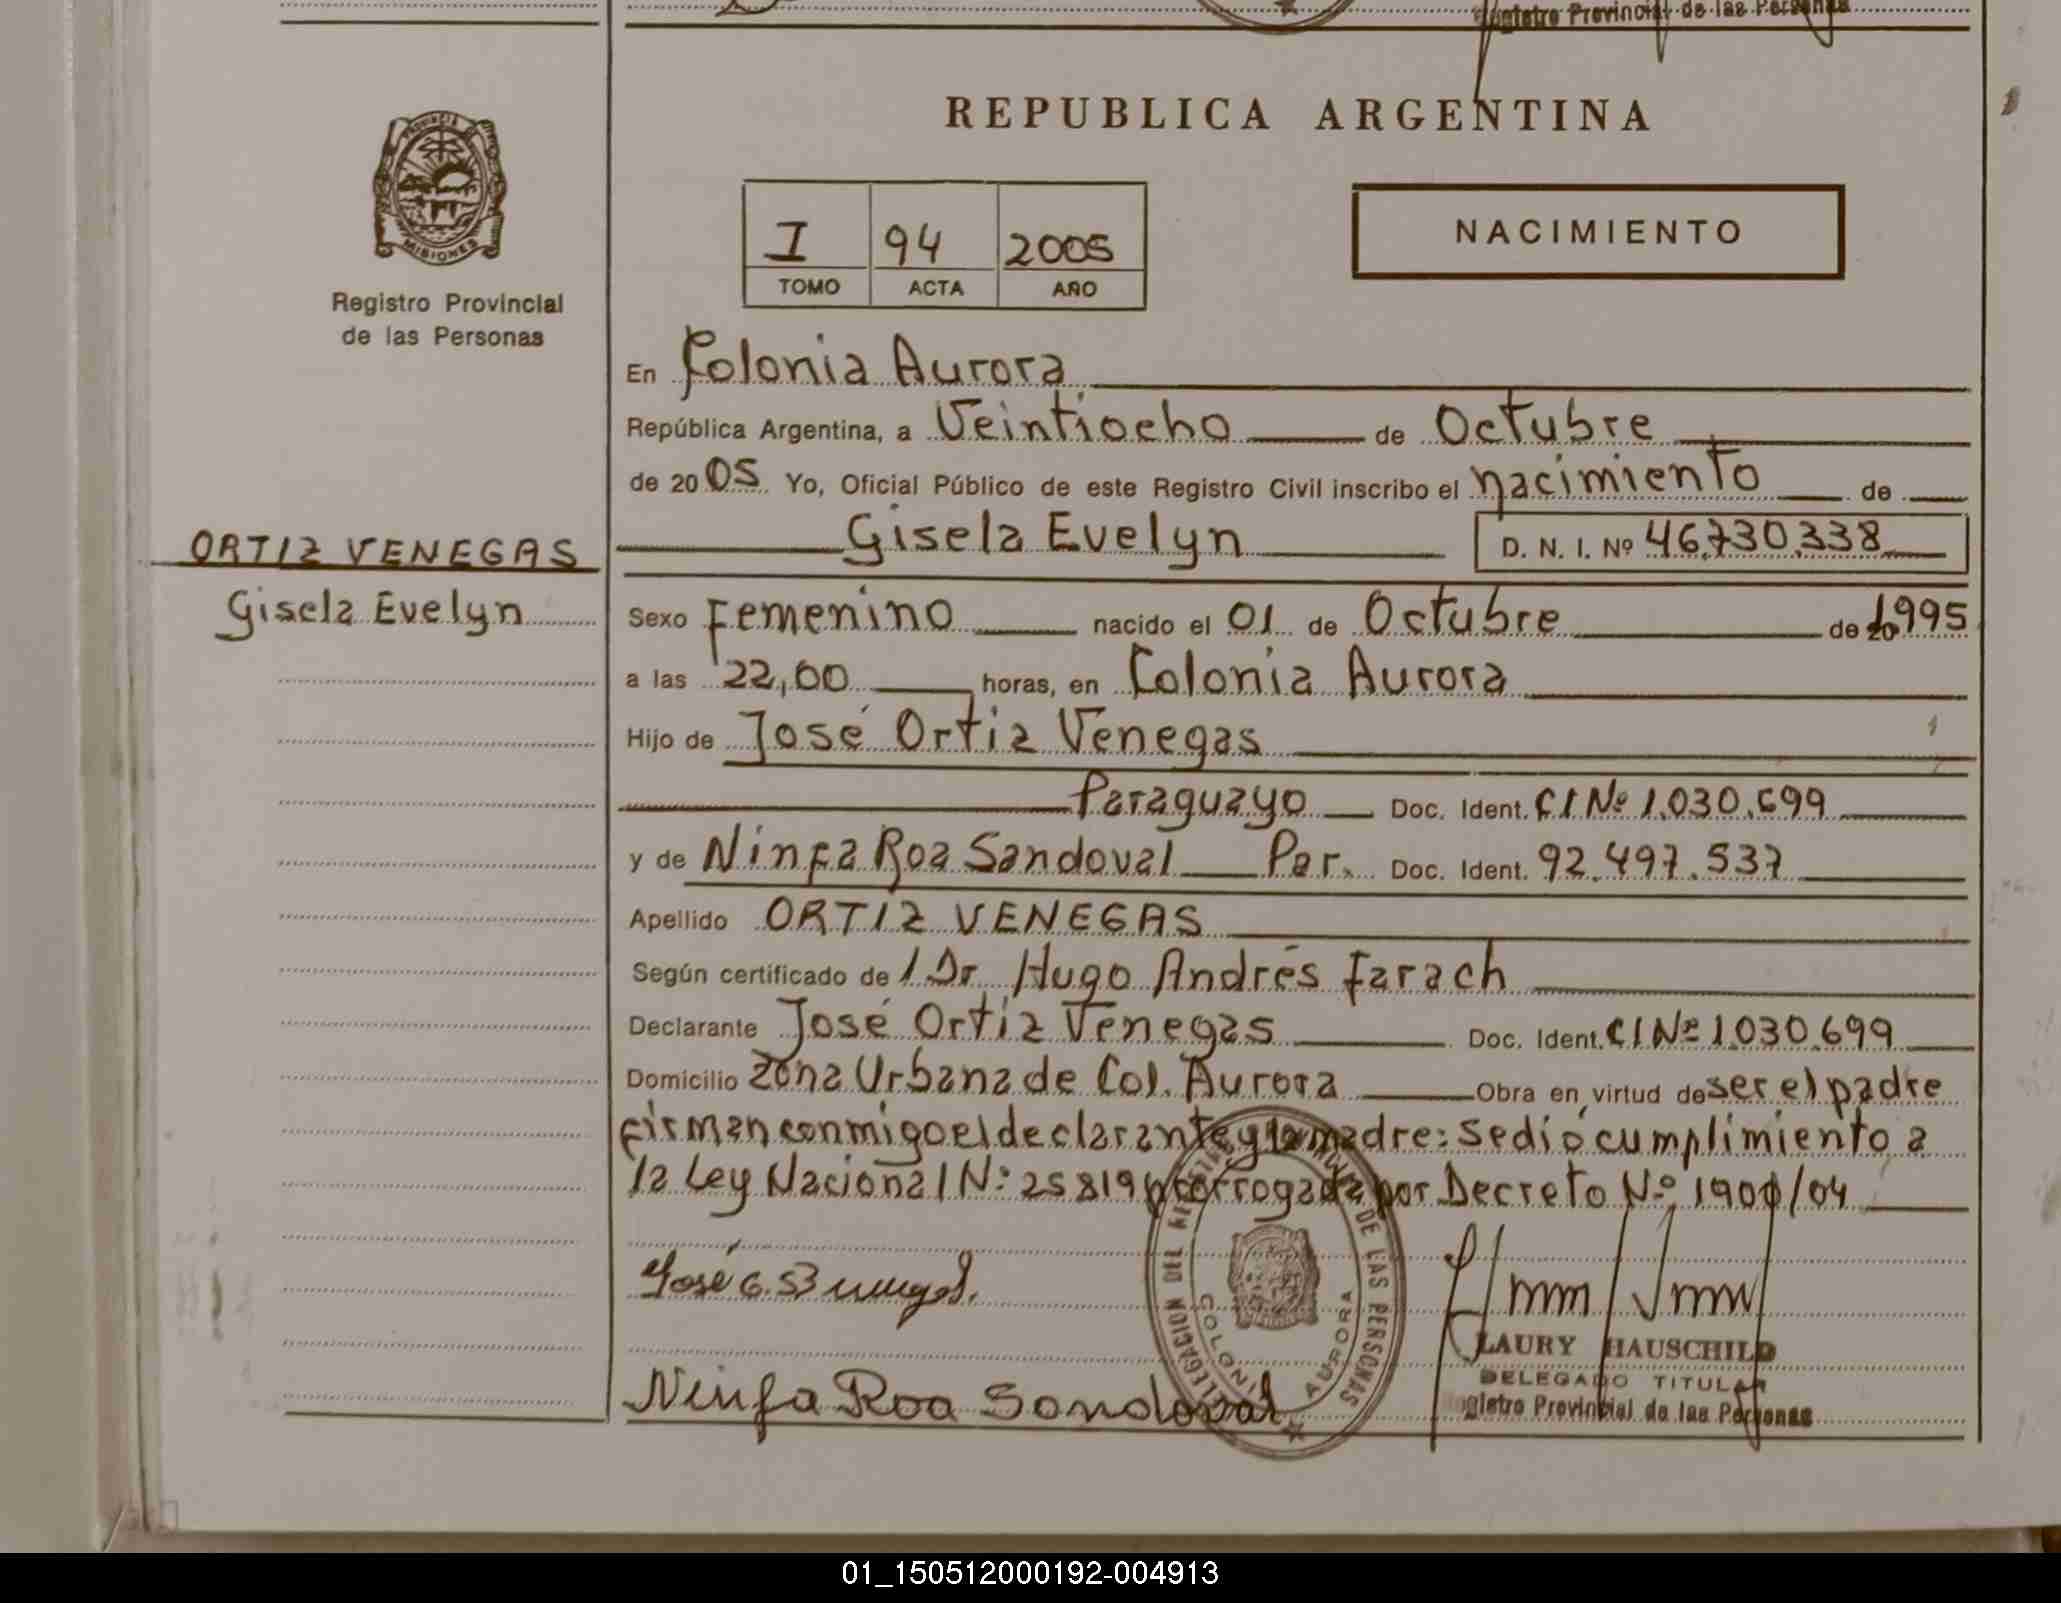 Registro Provincial de las Personas
REPUBLICA ARGENTINA
PROVINCIA DE
MISIONES
Registro Provincial
de las Personas
I 94 2005
TOMO ACTA AÑO
NACIMIENTO
En Colonia Aurora
República Argentina, a Veintiocho de Octubre
de 2005 Yo, Oficial Público de este Registro Civil inscribo el nacimiento de
ORTIZ VENEGAS
Gisela Evelyn D. N. I. Nº 46.730.338
Gisela Evelyn
Sexo Femenino nacido el 01 de Octubre de 1995
a las 22,00 horas, en Colonia Aurora
Hijo de José Ortiz Venegas
Paraguayo Doc. Ident. CI Nº 1.030.699
y de Ninfa Roa Sandoval Par. Doc. Ident. 92.497.537
Apellido ORTIZ VENEGAS
Según certificado de 1 Dr. Hugo Andrés Farach
Declarante José Ortiz Venegas Doc. Ident. CI Nº 1.030.699
Domicilio Zona Urbana de Col. Aurora Obra en virtud de ser el padre
firman conmigo el declarante y la madre: Se dió cumplimiento a
la Ley Nacional N: 25819 prorrogada por Decreto Nº 1900/04
José
DELEGACION DEL REGISTRO DE LAS PERSONAS
COLONIA AURORA
LAURY HAUSCHILD
DELEGADO TITULAR
Registro Provincial de las Personas
Ninfa Roa Sandoval
01_150512000192-004913